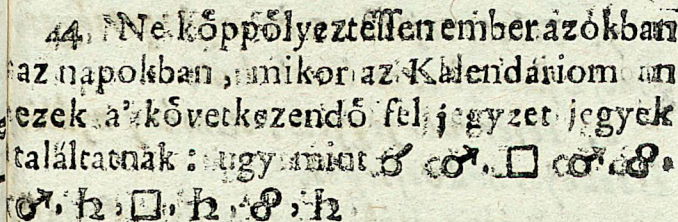 44. Ne kőppőlyeztessen ember azokban
az napokban, mikor az Kalendáriom an
ezek a' kővetkezendő fel jegyzet jegyek
találtatnak: ugy mint ☌ ♂. □ ♂. ☍.
♂, ♄, □, ♄, ☍, ♄